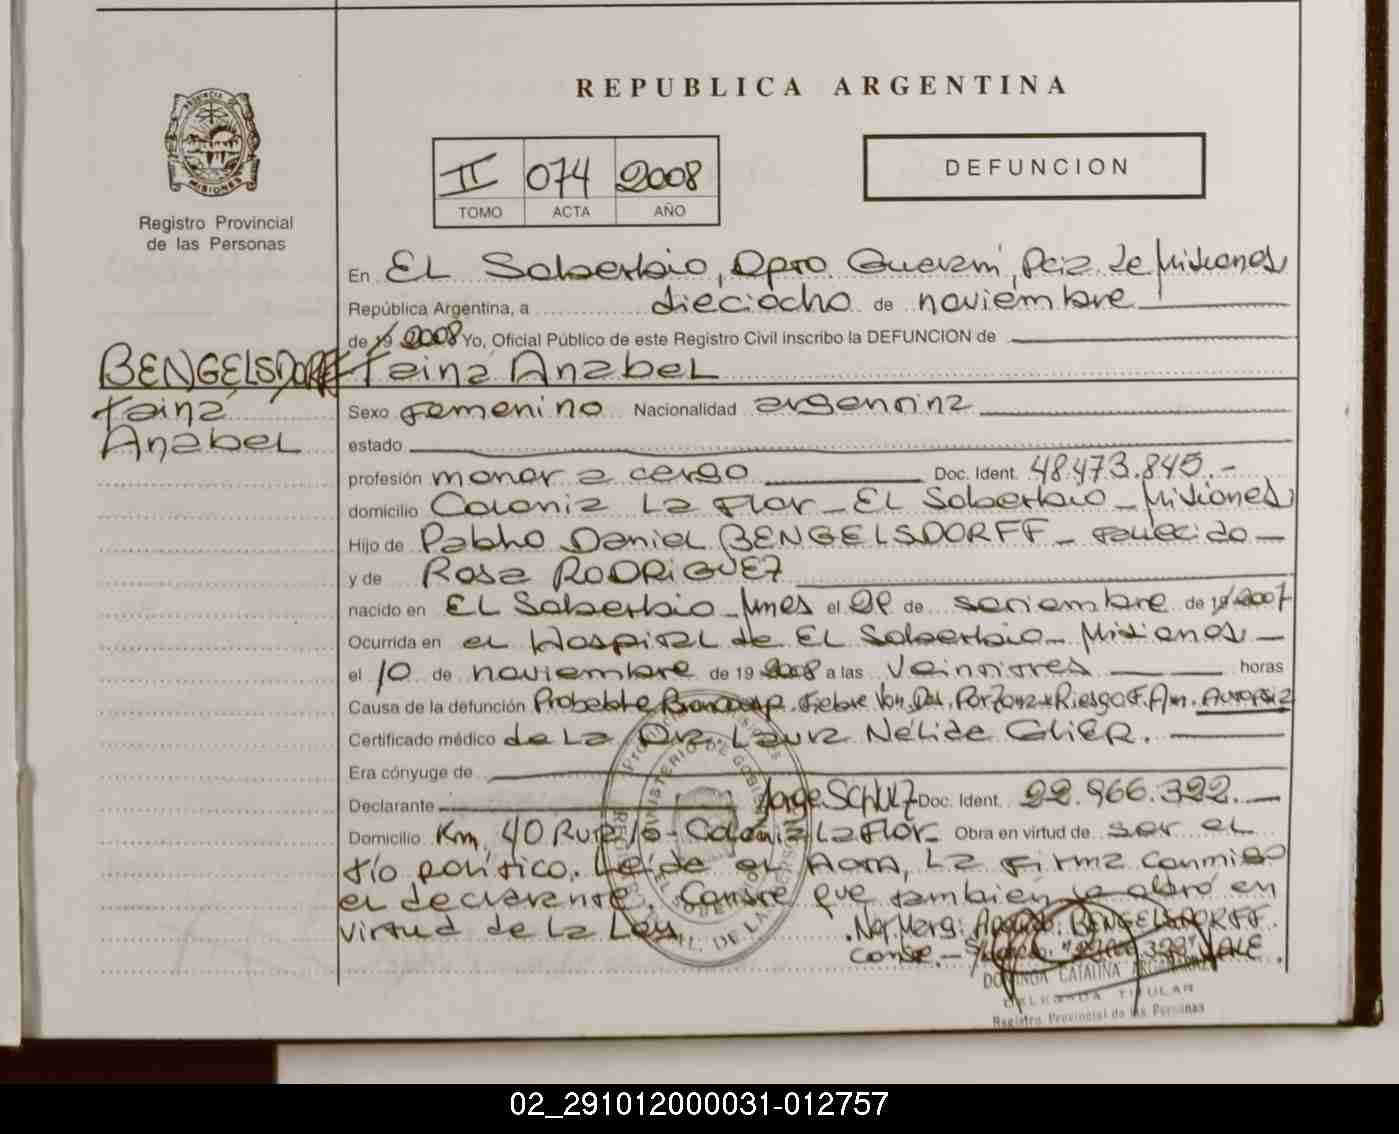 REPUBLICA ARGENTINA
PROVINCIA DE MISIONES
Registro Provincial
de las Personas
II 074 2008
TOMO ACTA AÑO
DEFUNCION
En EL Soberbio, Dpto. Guaraní, Pcia. de Misiones
República Argentina, a dieciocho de noviembre
de 19 2008 Yo, Oficial Público de este Registro Civil inscribo la DEFUNCION de
BENGELSDORFF Tainá Anabel
Tainá
Anabel
Sexo femenino Nacionalidad argentina
estado
profesión menor a cargo Doc. Ident. 48.473.845.-
domicilio Colonia La Flor - EL Soberbio - Misiones
Hijo de Pablo Daniel BENGELSDORFF - fallecido -
y de Rosa RODRIGUEZ
nacido en EL Soberbio - Mnes el 22 de setiembre de 19 2007
Ocurrida en el Hospital de EL Soberbio - Misiones -
el 10 de noviembre de 19 2008 a las Veintitres horas
Causa de la defunción Probable Fiebre Riesgo F. Am. Autopsia
Certificado médico de La Dra. Laura Nélida Glier.
Era cónyuge de
Declarante Jorge SCHULZ Doc. Ident. 22.966.322.-
Domicilio Km. 40 Ruta - Colonia La Flor - Obra en virtud de ser el
tío político. Leída el Acta, La firma conmigo
el declarante. Conste que también se obró en
virtud de La Ley
Not. Marg: BENGELSDORFF.
conste.- VALE.
CATALINA
DELEGADA TITULAR
Registro Provincial de las Personas
02_291012000031-012757